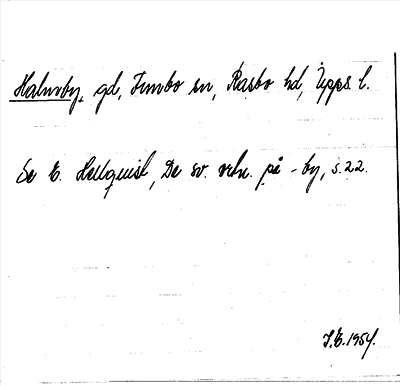 Halmby, gd, Funbo sn, Rasbo hd, Upps l.
Se E. Hellquist, De sv. ortn. på -by, s. 22.
I.E. 1954.